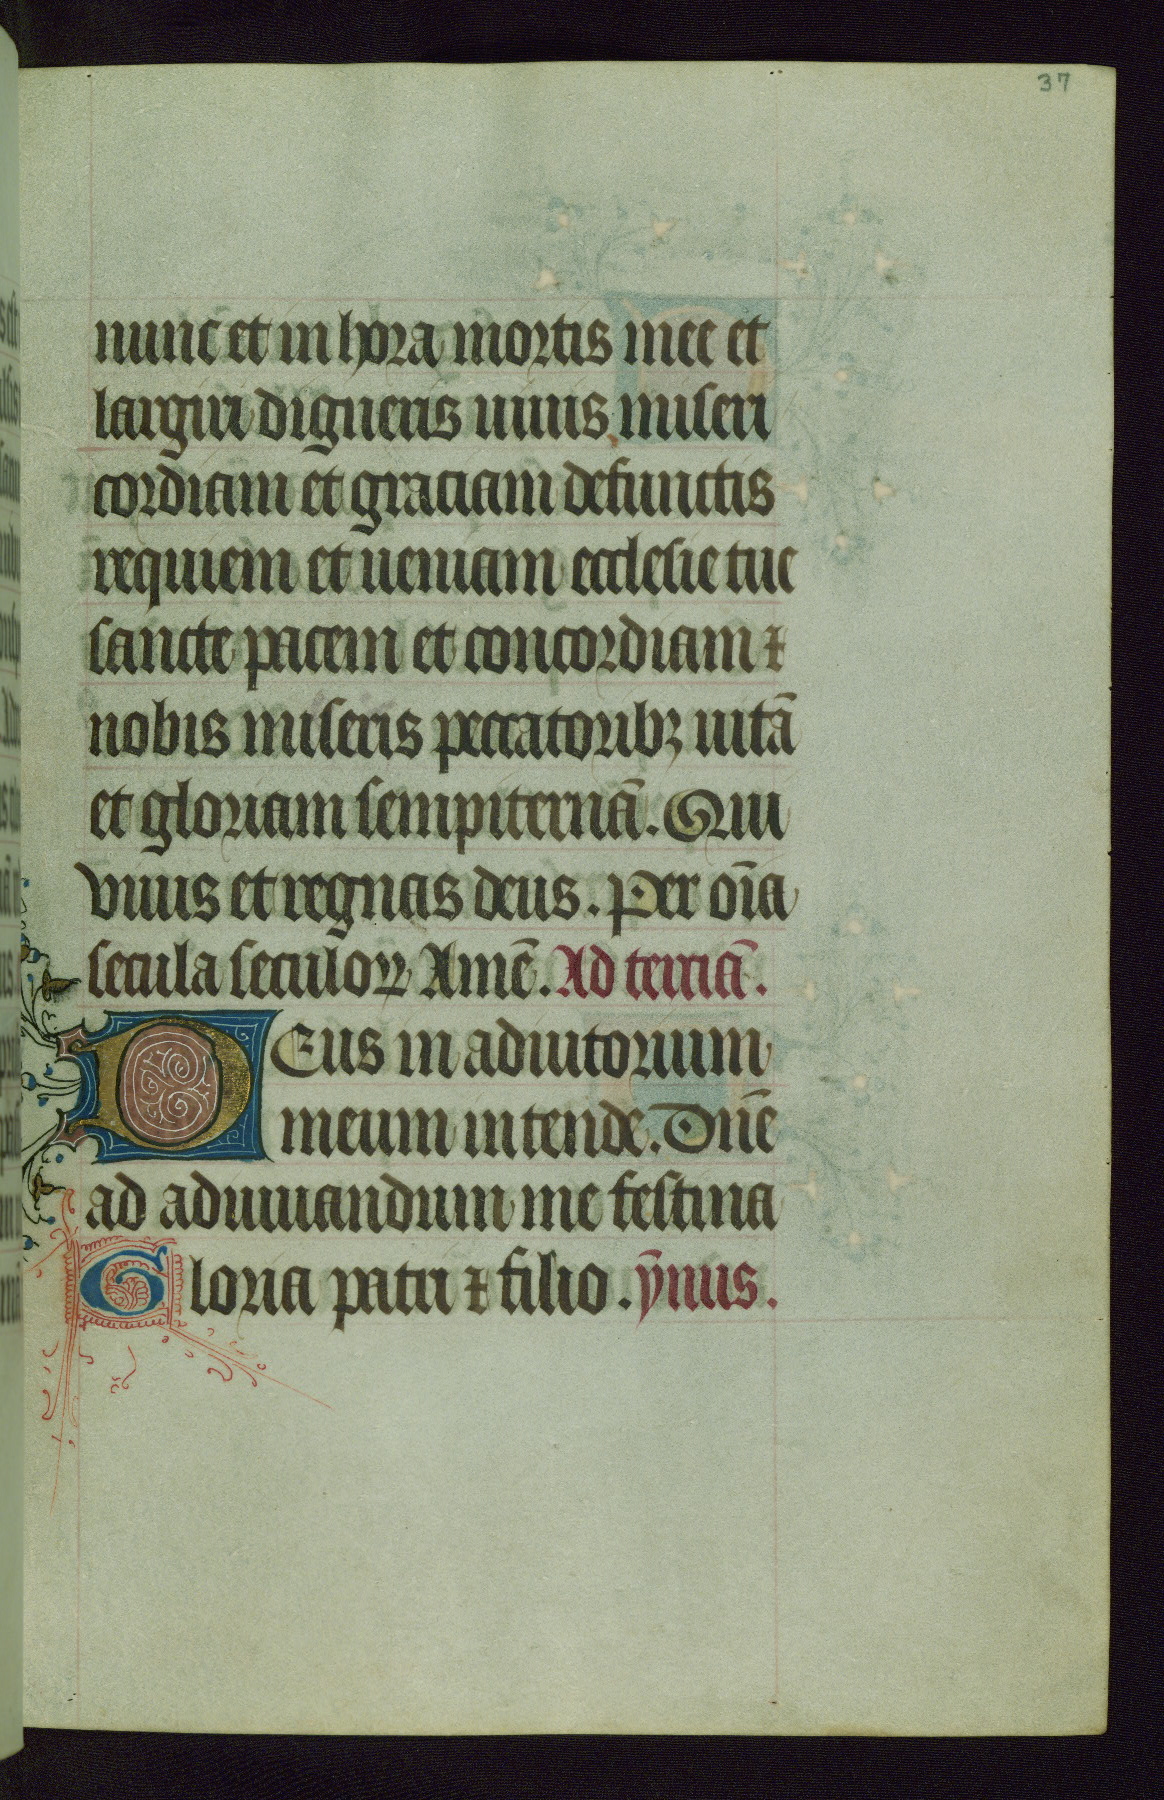 37
nunc et in hora mortis mee et
largiri digneris uiuis miseri
cordiam et graciam defunctis
requiem et ueniam ecclesie tue
sancte pacem et concordiam ⁊
nobis miseris peccatoribꝫ uitã
et gloriam sempiternã. Qui
viuis et regnas deus. Per oĩa
secula seculoꝝ Amẽ. Ad terciã.
DEus in adiutorium
meum intende. Dñe
ad adiuuandum me festina
Gloria patri ⁊ filio. ỹnus.